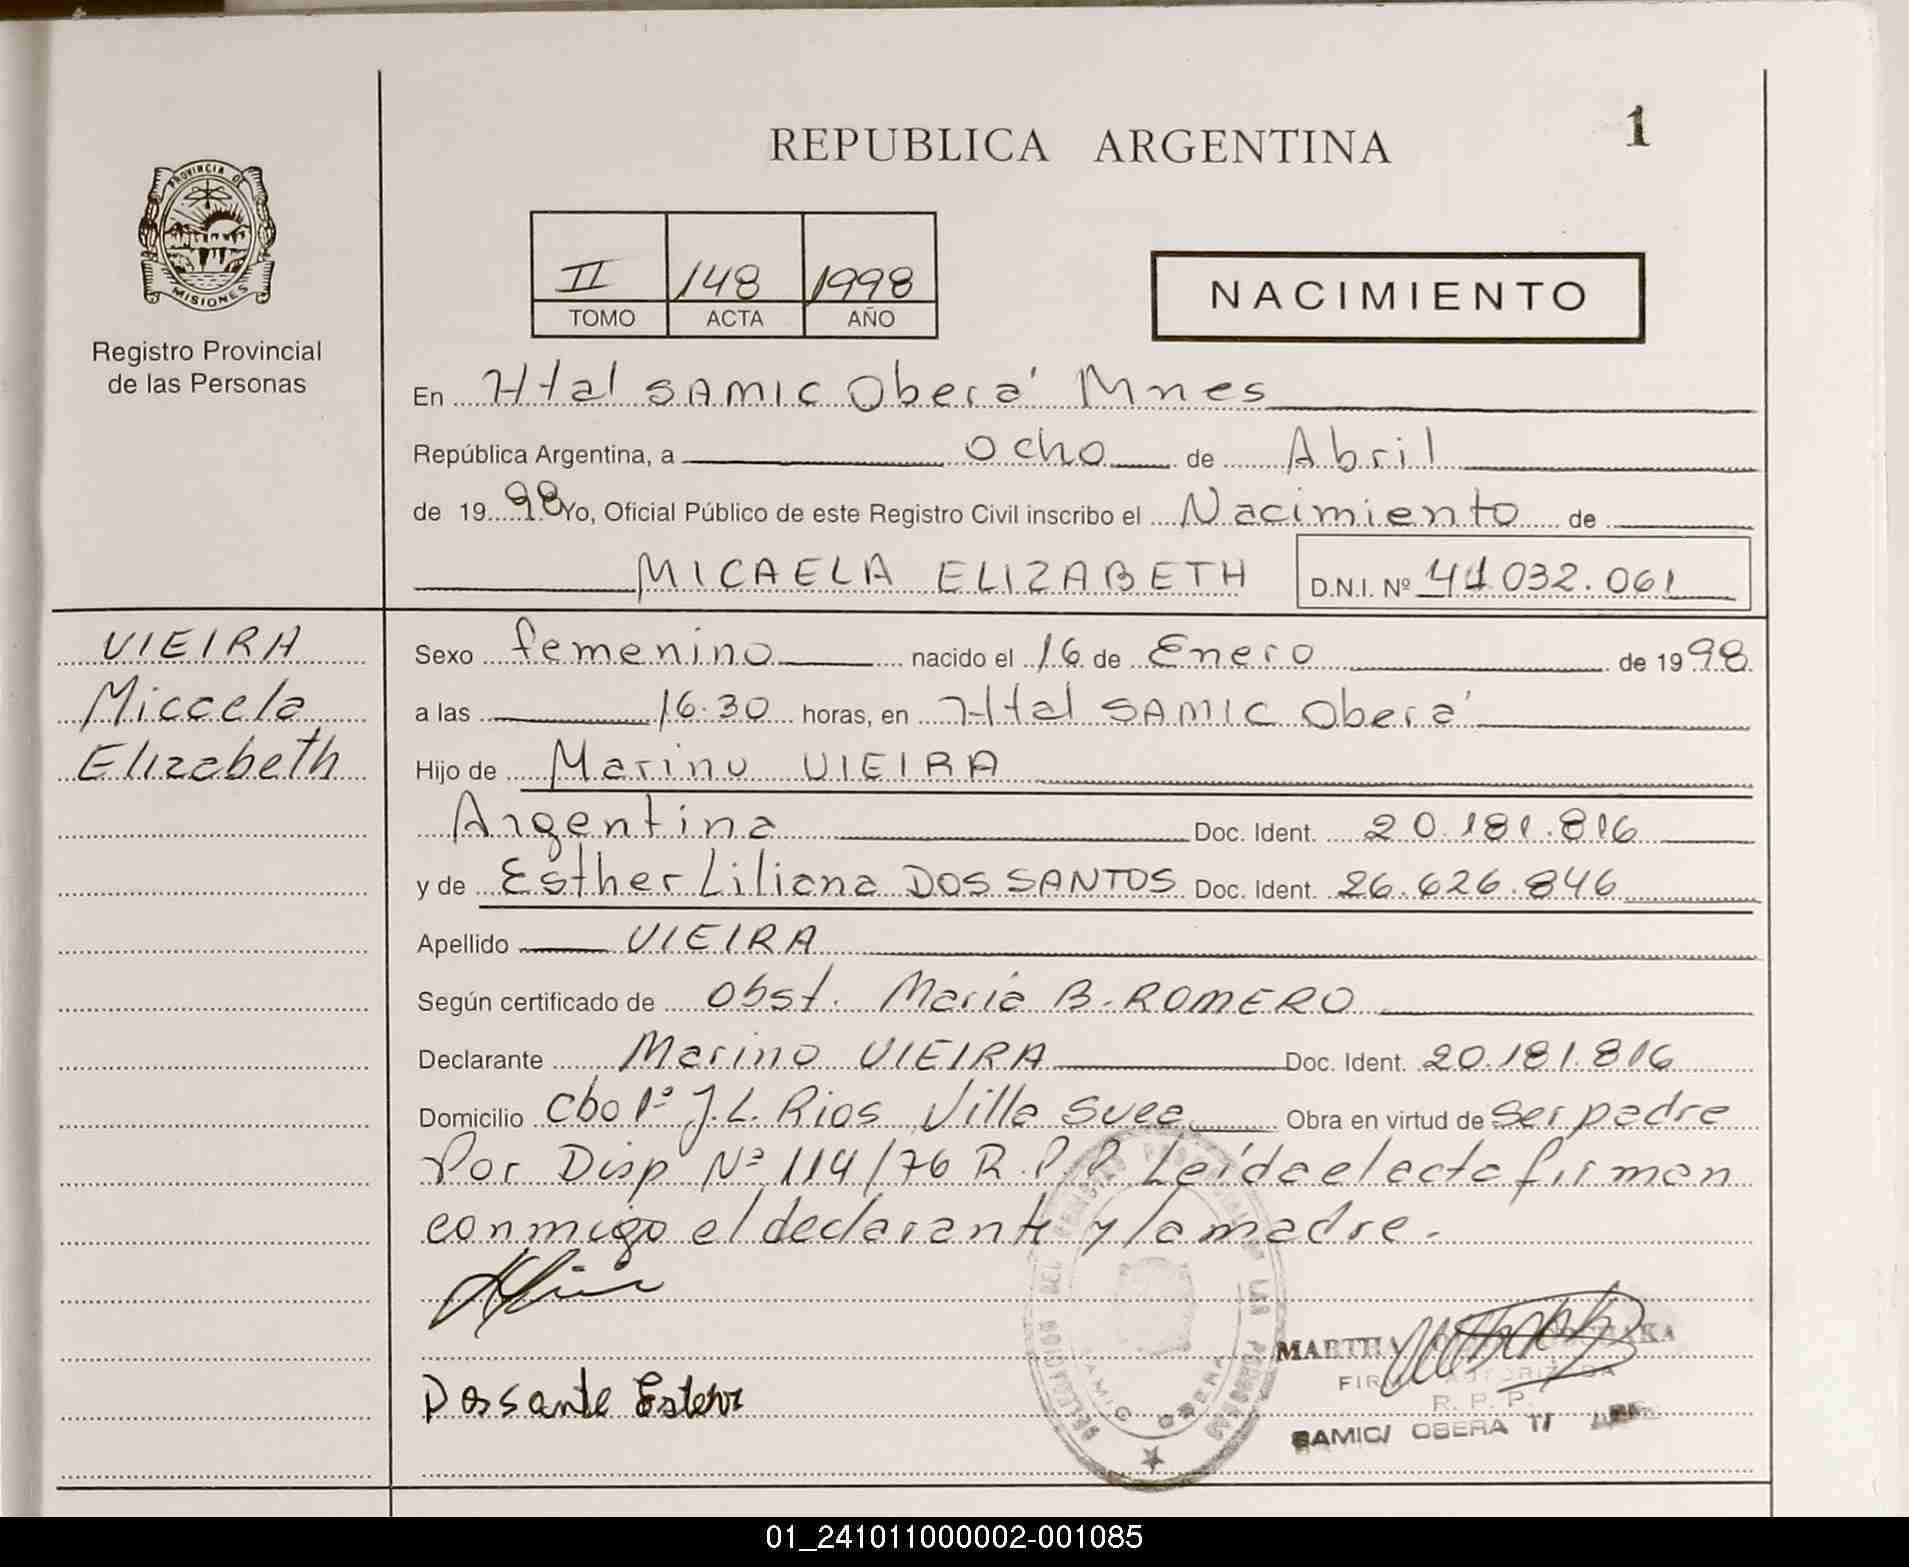 REPUBLICA ARGENTINA
1
PROVINCIA DE
MISIONES
Registro Provincial
de las Personas
II 148 1998
TOMO ACTA AÑO
NACIMIENTO
En Htal SAMIC Oberá Mnes
República Argentina, a ocho de Abril
de 1998 Yo, Oficial Público de este Registro Civil inscribo el Nacimiento de
MICAELA ELIZABETH D.N.I. Nº 41.032.061
VIEIRA
Micaela
Elizabeth
Sexo femenino nacido el 16 de Enero de 1998
a las 16.30 horas, en Htal SAMIC Oberá
Hijo de Marino VIEIRA
Argentina Doc. Ident. 20.181.816
y de Esther Liliana DOS SANTOS Doc. Ident. 26.626.846
Apellido VIEIRA
Según certificado de Obst. María B. ROMERO
Declarante Marino VIEIRA Doc. Ident. 20.181.816
Domicilio Cbo 1º J.L. Rios Villa Svea Obra en virtud de Ser padre
Por Disp Nº 114/76 R.P.P. Leída el acta firman
conmigo el declarante y la madre.
MARTHA
FIRMA AUTORIZADA
R. P. P.
SAMIC/ OBERA
Dossante Ester
01_241011000002-001085